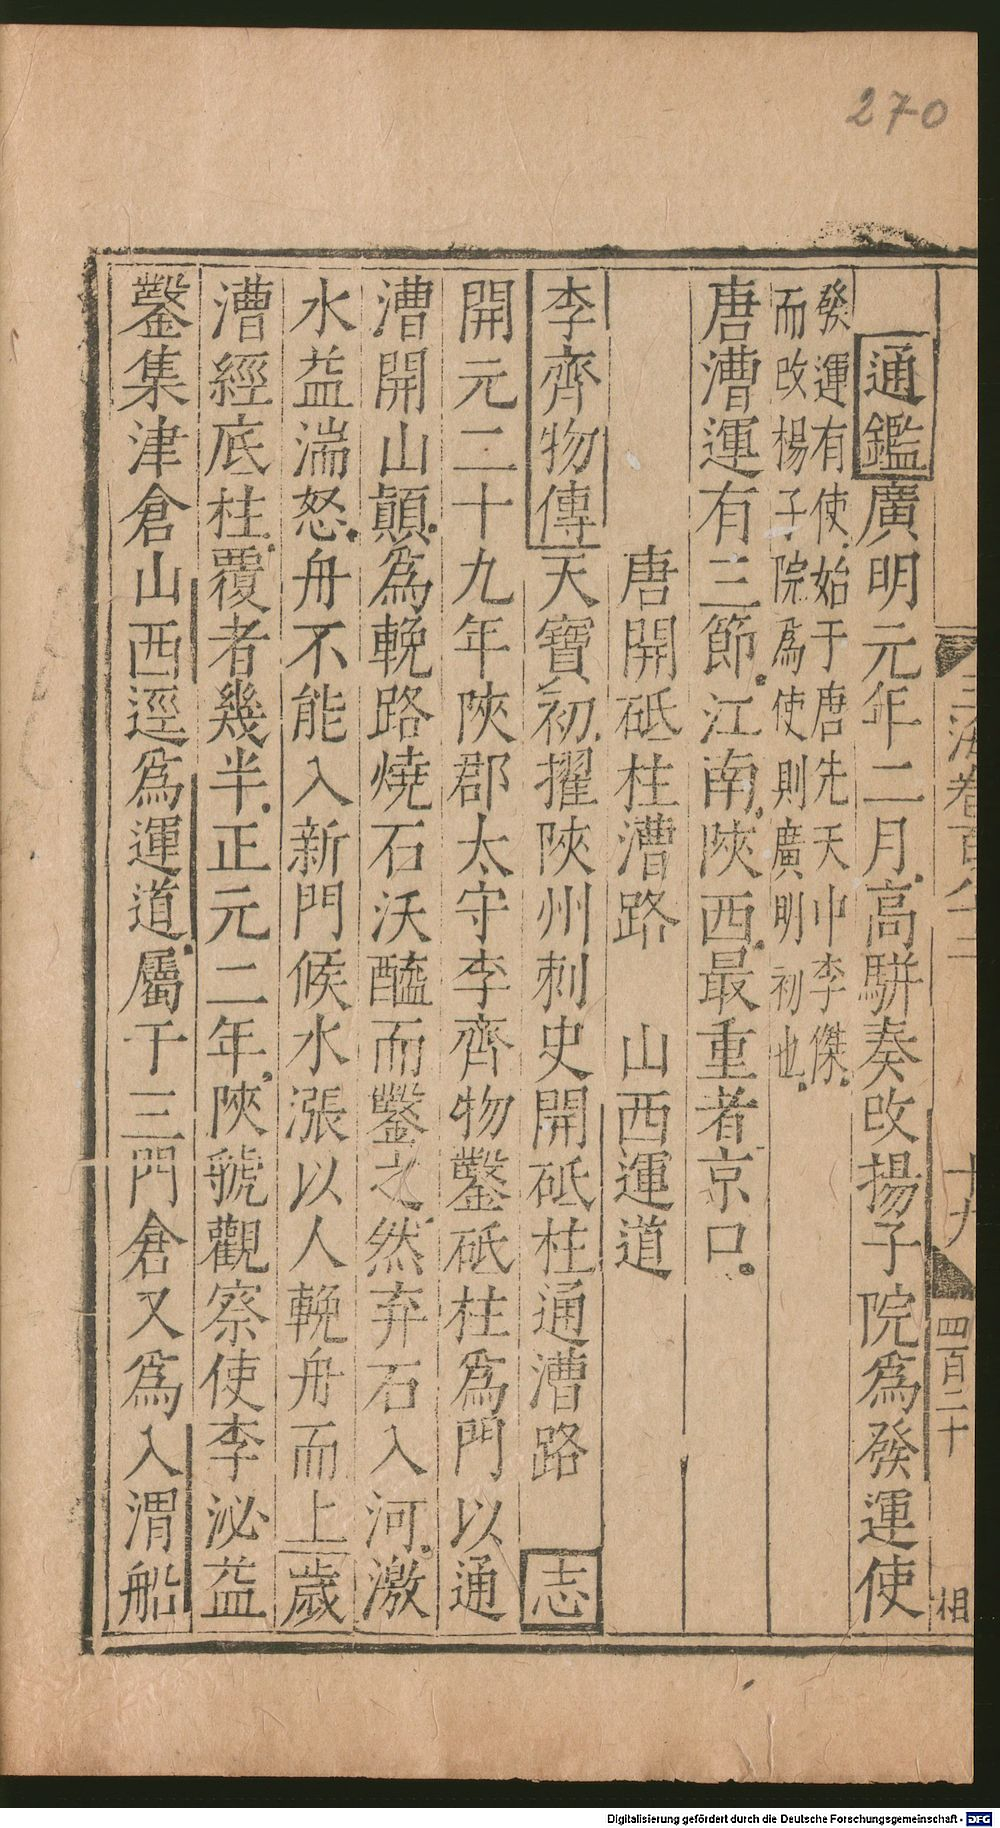 270
玉海卷百八十二
十九
四百二十
相
通鑑廣明元年二月高駢奏改揚子院爲發運使
發運有使始于唐先天中李傑
而改楊子院爲使則廣明初也
唐漕運有三節江南陝西最重者京口
唐開砥柱漕路 山西運道
李齊物傳天寶初擢陝州刺史開砥柱通漕路 志
開元二十九年陝郡太守李齊物鑿砥柱爲門以通
漕開山顛爲輓路燒石沃醯而鑿之然弃石入河激
水益湍怒舟不能入新門候水漲以人輓舟而上歲
漕經底柱覆者幾半正元二年陝虢觀察使李泌益
鑿集津倉山西逕爲運道屬于三門倉又爲入渭船
Digitalisierung gefördert durch die Deutsche Forschungsgemeinschaft - DFG